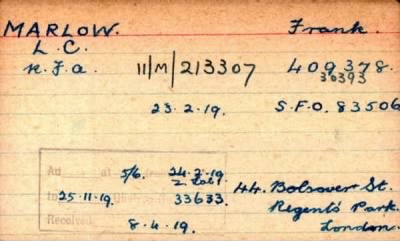 MARLOW. Frank.
L. C.
R.F.A. 11/M/213307 409378.
30393
23.2.19. S.F.O. 83506
5/6. 24.2.19.
25.11.19. 33633. 44. Bolsover St.
Regent's Park.
Received 8.4.19. London.